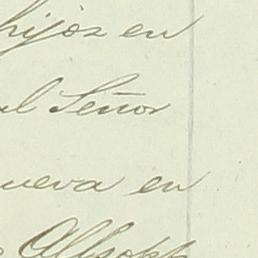 hijos en
el Señor
ueva en
Allsopp